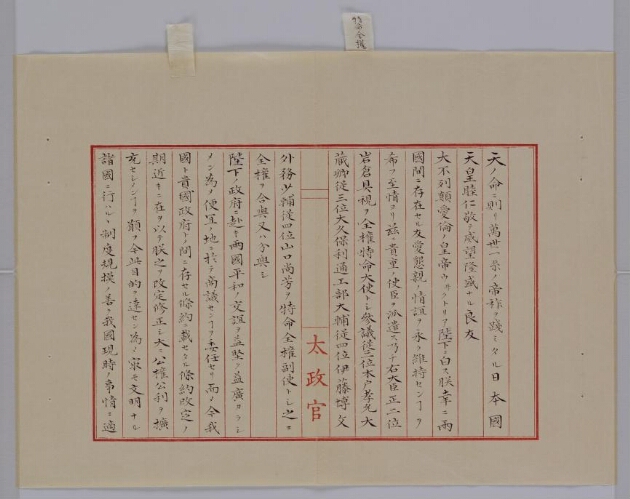 天ノ命ニ則リ萬世一系ノ帝祚ヲ踐ミタル日本國
天皇睦仁敬テ威望隆盛ナル良友
大不列顛愛倫ノ皇帝ウィクトリア陛下ニ白ス朕幸ニ兩
國間ニ存在セル友愛懇親ノ情誼ヲ永ク維持センヿヲ
希フノ至情ヨリ茲ニ貴重ノ使臣ヲ派遣ス乃チ右大臣正二位
岩倉具視ヲ全權特命大使トシ參議從三位木戸孝允大
藏卿從三位大久保利通工部大輔從四位伊藤博文
太政官
外務少輔從四位山口尚芳ヲ特命全權副使トシ之ニ
全權ヲ合與又ハ分與シ
陛下ノ政府ニ赴キ兩國平和ノ交誼ヲ益堅ク益廣カラシ
メン為メ便宜ノ地ニ於テ商議センヿヲ委任セリ而ノ今我
國ト貴國政府トノ間ニ存セル條約ニ載セタル條約改定ノ
期近キニ在ルヲ以テ朕之ヲ改定修正シ大ニ公權公利ヲ擴
充セシメンヿヲ願フ今此目的ヲ達セン為メ最モ文明ナル
諸國ニ行ハルヽ制度規模ノ善ク我國現時ノ事情ニ適